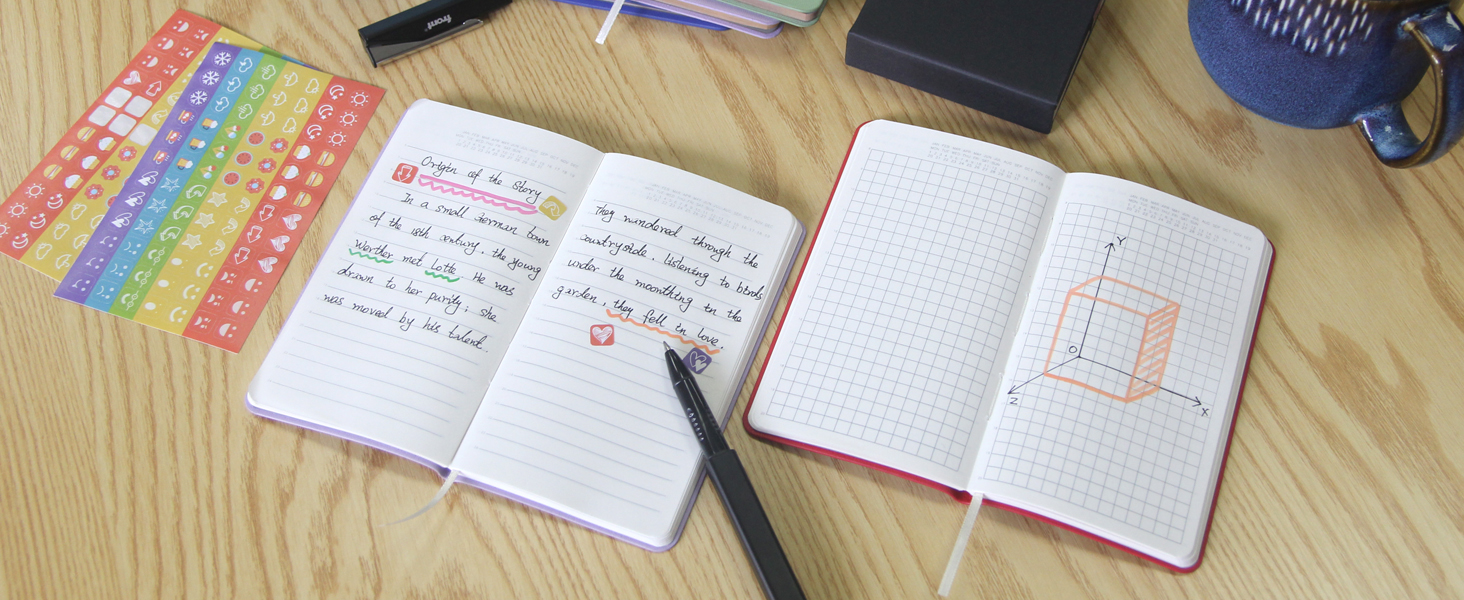 front
Origin of the Story
In a small German town
of the 18th century, the young
Werther met Lotte. He was
drawn to her purity; she
was moved by his talent.
They wandered through the
countryside, listening to birds
under the moonthing in the
garden, they fell in love.
Y
O
Z
X